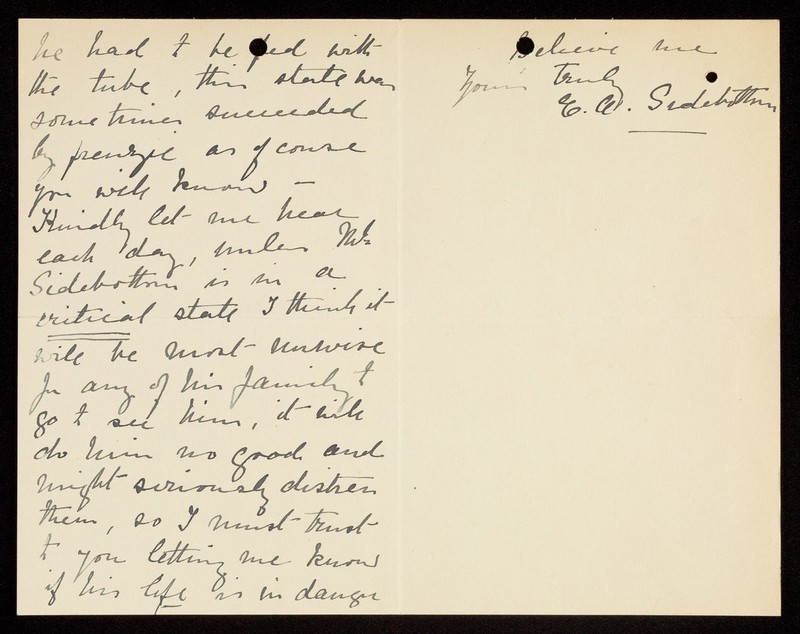 he had to be fed with
the tube, this state was
sometimes succeeded
by frenzie as of course
you will know –
Kindly let me hear
each day, unless Mr
Sidebottom is in a
critical state I think it
will be most unwise
for any of his family to
go to see him, it will
do him no good and
might seriously distress
them, so I must trust
to you letting me know
if his life is in danger
Believe me
Yours truly
E. A. Sidebottom